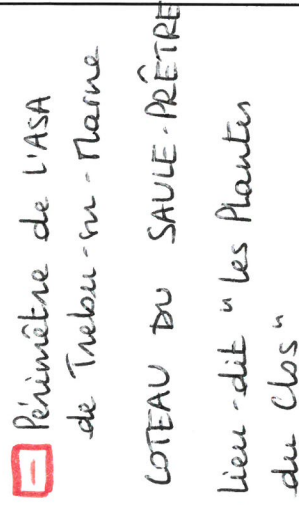 Périmètre de L'ASA
de Trelou-sur-Marne
COTEAU DU SAULE-PRÊTRE
Lieu-dit "les Plantes
du Clos"